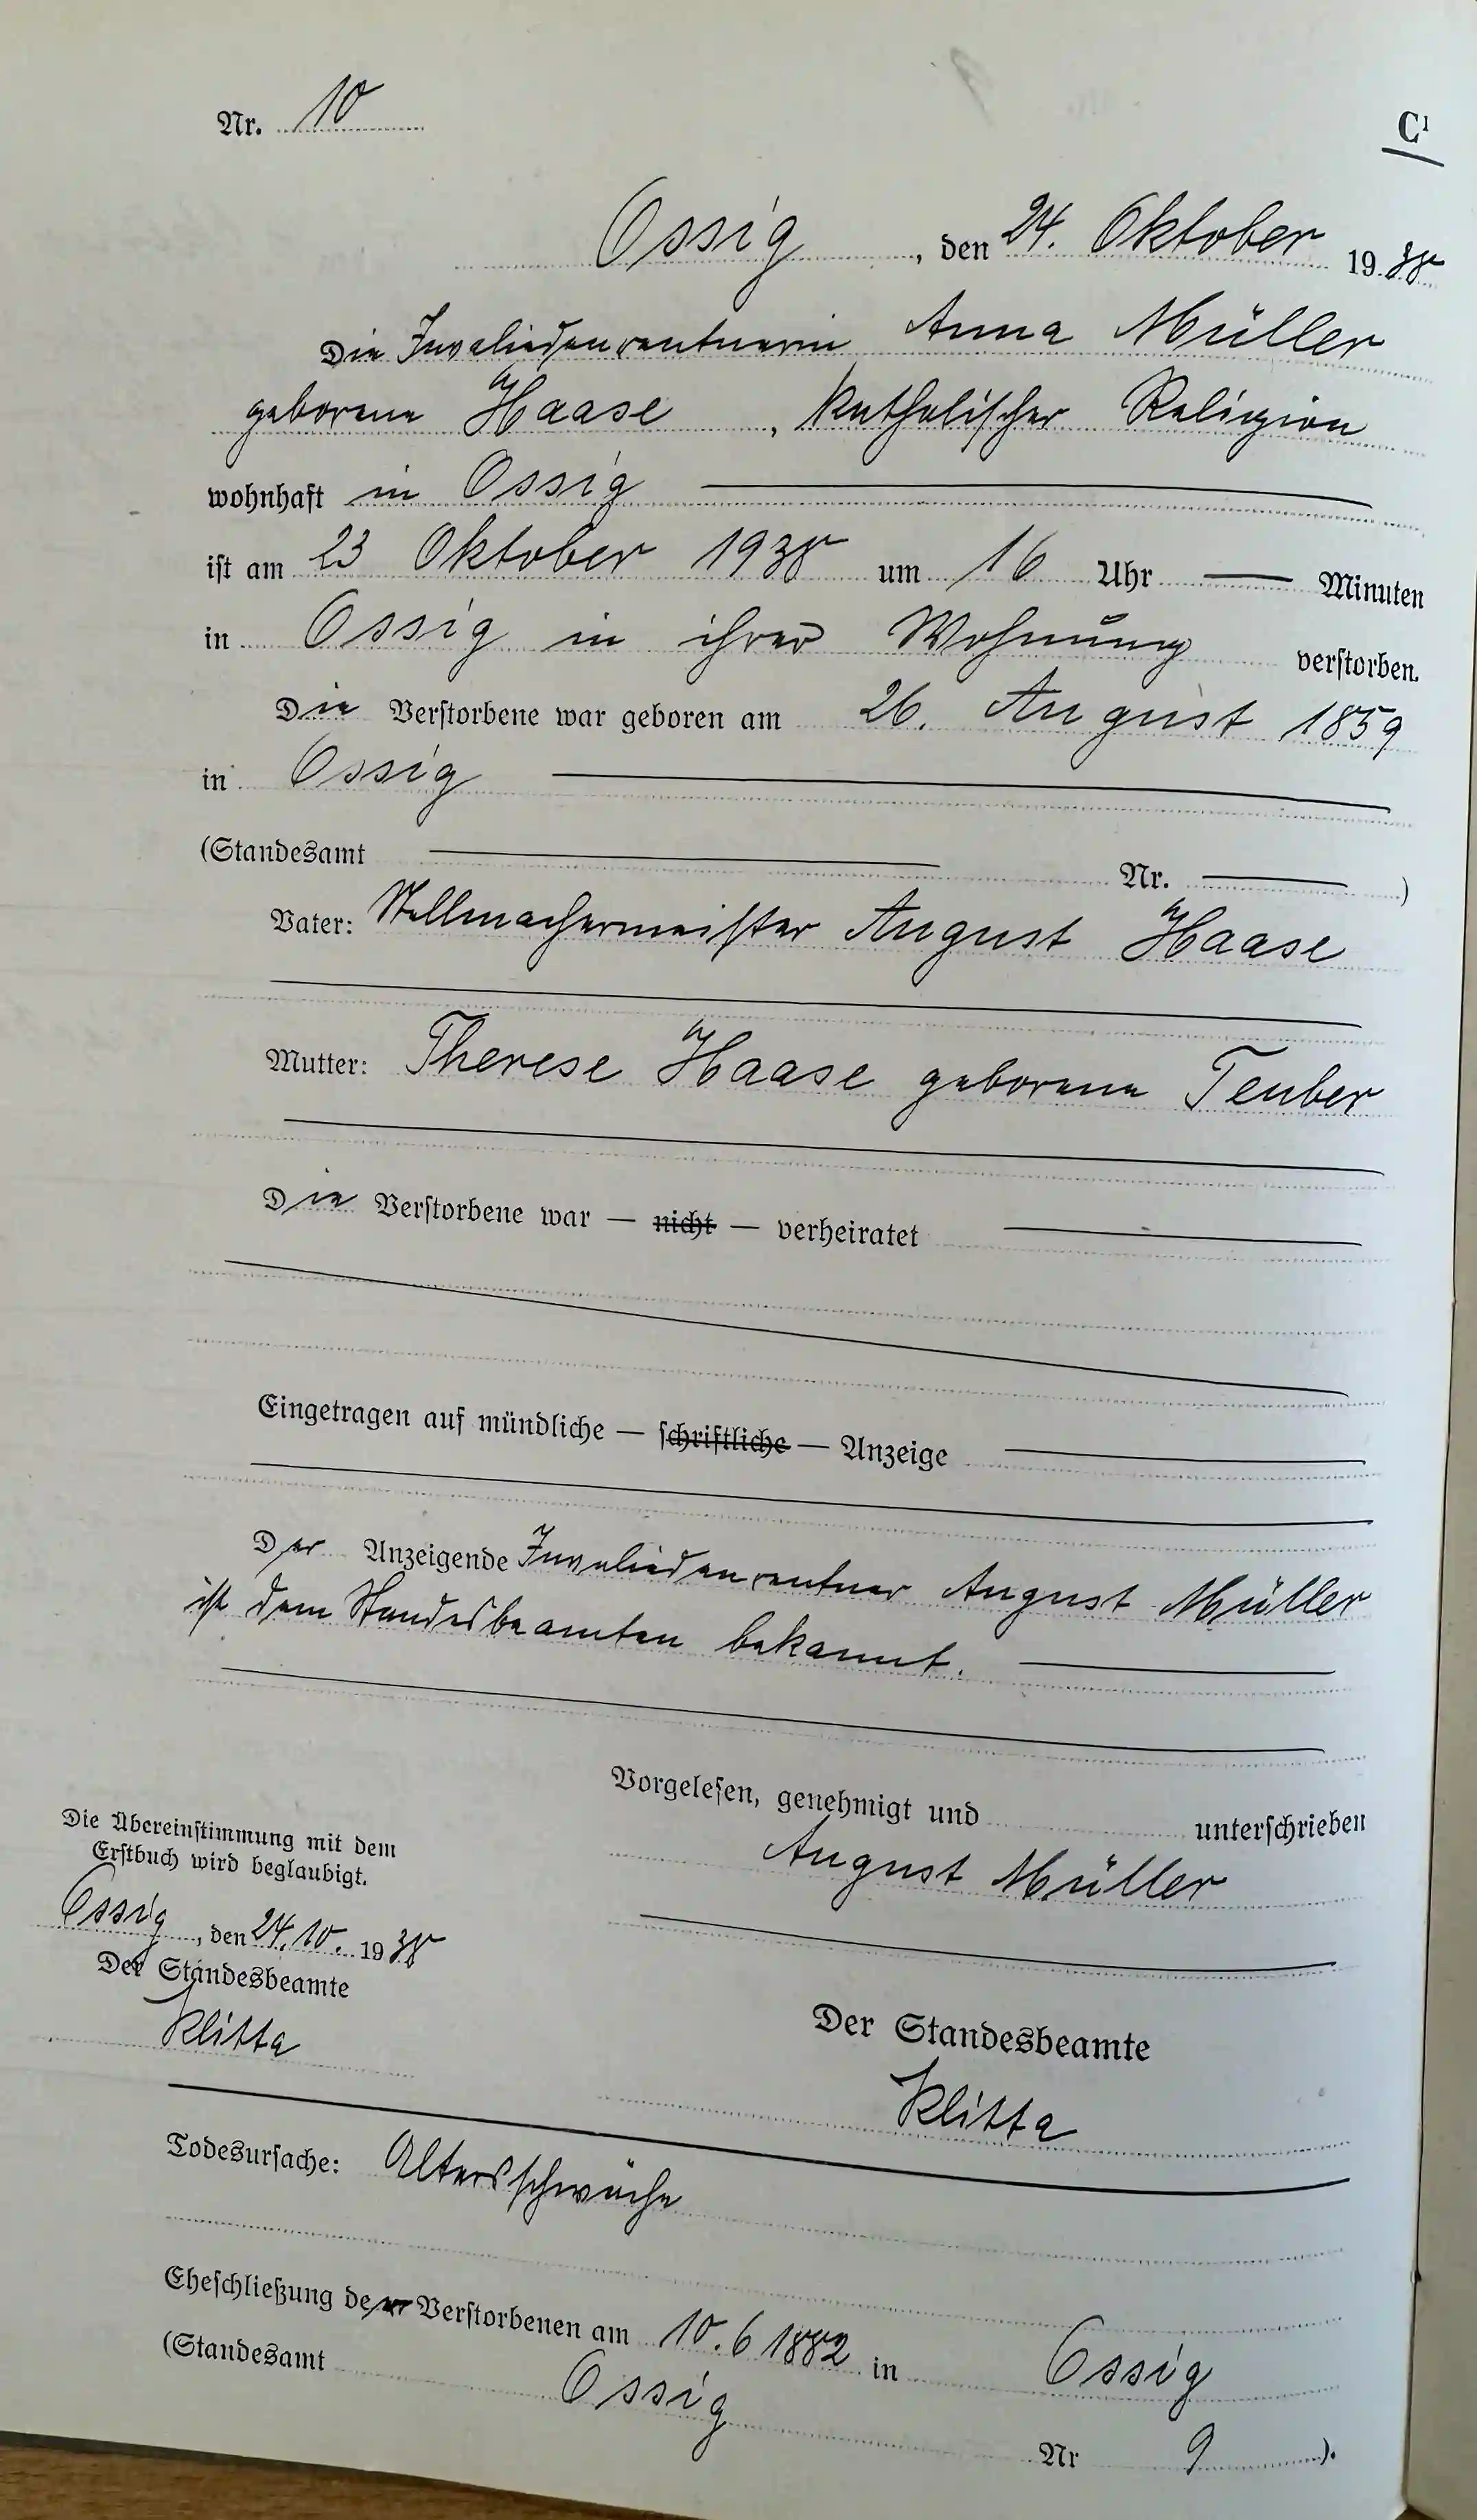 Nr. 10
C1
Ossig, den 24. Oktober 1938
Die Invaliedenrentnerin Anna Müller
geborene Haase, katholischer Religion
wohnhaft in Ossig
ist am 23 Oktober 1938 um 16 Uhr — Minuten
in Ossig in ihrer Wohnung verstorben.
Die Verstorbene war geboren am 26. August 1859
in Ossig
(Standesamt — Nr. —)
Vater: Stellmachermeister August Haase
Mutter: Therese Haase geborene Teuber
Die Verstorbene war — nicht — verheiratet
Eingetragen auf mündliche — schriftliche — Anzeige
Der Anzeigende Invaliedenrentner August Müller
ist dem Standesbeamten bekannt.
Vorgelesen, genehmigt und unterschrieben
August Müller
Die Übereinstimmung mit dem
Erstbuch wird beglaubigt.
Ossig, den 24.10. 1938
Der Standesbeamte
Klitta
Der Standesbeamte
Klitta
Todesursache: Altersschwäche
Eheschließung der Verstorbenen am 10.6 1882 in Ossig
(Standesamt Ossig
Nr 9).